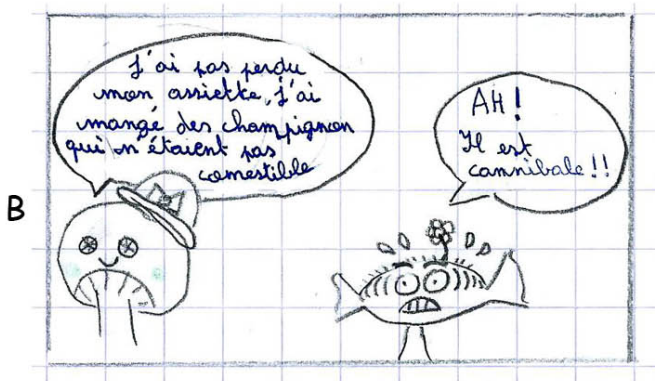 J'ai pas perdu
mon assiette, j'ai
mangé des champignon
qui n'étaient pas
comestible
AH!
Il est
cannibale !!
B